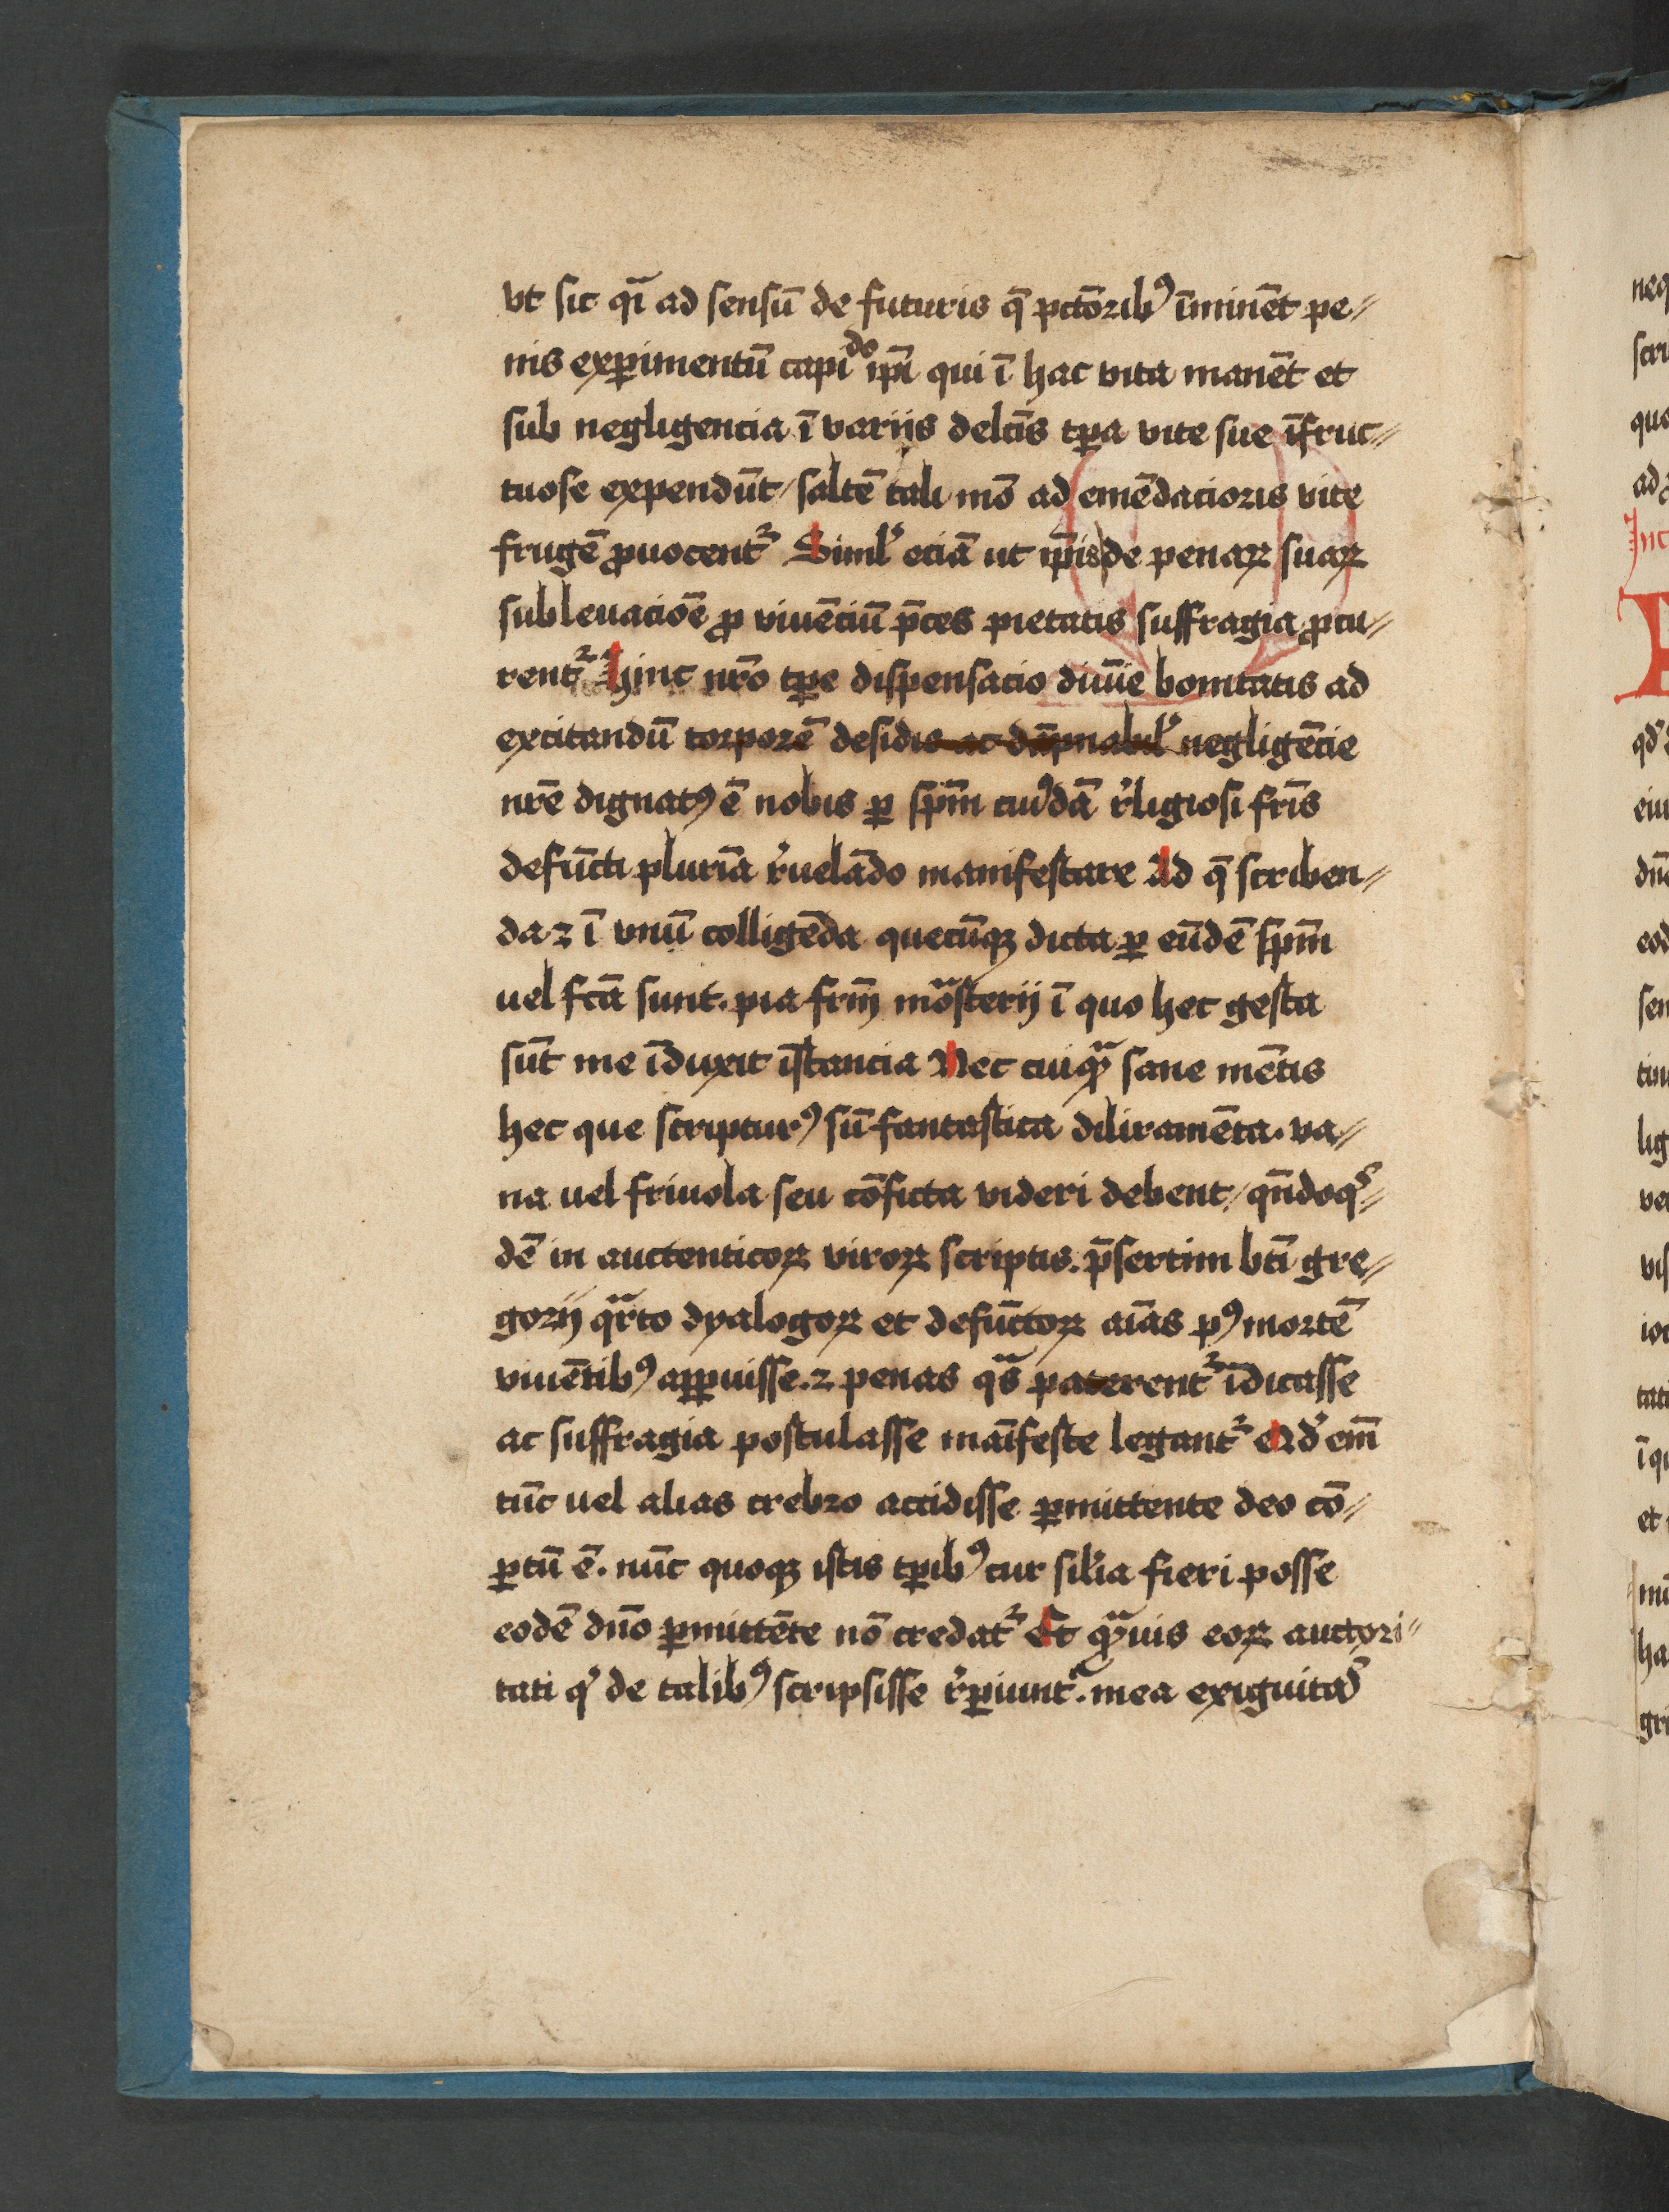 vt sic qͥ ad sensū de futuris q̄ pctōribꝰ īminēt pe⸗
nis exꝑimentū capiīdo ip̄i qui ī hac vita manēt et
sub negligencia ī variis delc̄is tp̄a vite sue īfruc⸗
tuose expendūt / saltē tali mō ad emēdacioris vite
frugē ꝓuocentᷣ Simlʼ eciā ut ip̄is de penaꝝ suaꝝ
subleuacōe ꝓ viuēciū p̄ces pietatis suffragia ꝓcu⸗
rentᷣ hinc nr̄o tꝑe dispensacio diuīe bonitatis ad
excitandū torporē desidis ac dāpnabilʼ negligēcie
nr̄e dignatꝰ ē nobis ꝑ sp̄m cuiꝰdā rʼligiosi fr̄is
defūcti plurīa rʼuelādo manifestare Ad q̄ scriben⸗
da ⁊ ī vnū colligēda quecūqꝫ dicta ꝑ eūdē sp̄m
uel fc̄a sunt. pia fr̄m mōsterij ī quo hec gesta
sūt me īduxit īstancia Nec cuiqᷓꝫ sane mētis
hec que scripturꝰ sū fantastica diliramēta. va⸗
na uel friuola seu cōficta videri debent / qn̄doqͥ⸗
dē in auctenticoꝝ viroꝝ scriptis. p̄sertim bt̄i gre⸗
gorij qᷓrto dyalogoꝝ et defūctoꝝ aīas pꝰ mortē
viuētibꝰ apꝑuisse. ⁊ penas qᷓs paterentᷣ īdicasse
ac suffragia postulasse maīfeste legantᷣ Qdʼ em̄
tūc uel alias crebro accidisse ꝑmittente deo cō⸗
ꝑtū ē. nūc quoqꝫ istis tꝑibꝰ cur silʼia fieri posse
eodē dn̄o ꝑmittēte nō credatᷣ Et qᷓꝫuis eoꝝ auctori⸗
tati qͥ de talibꝰ scripsisse rʼꝑiuntᷣ. mea exiguitaꝭ